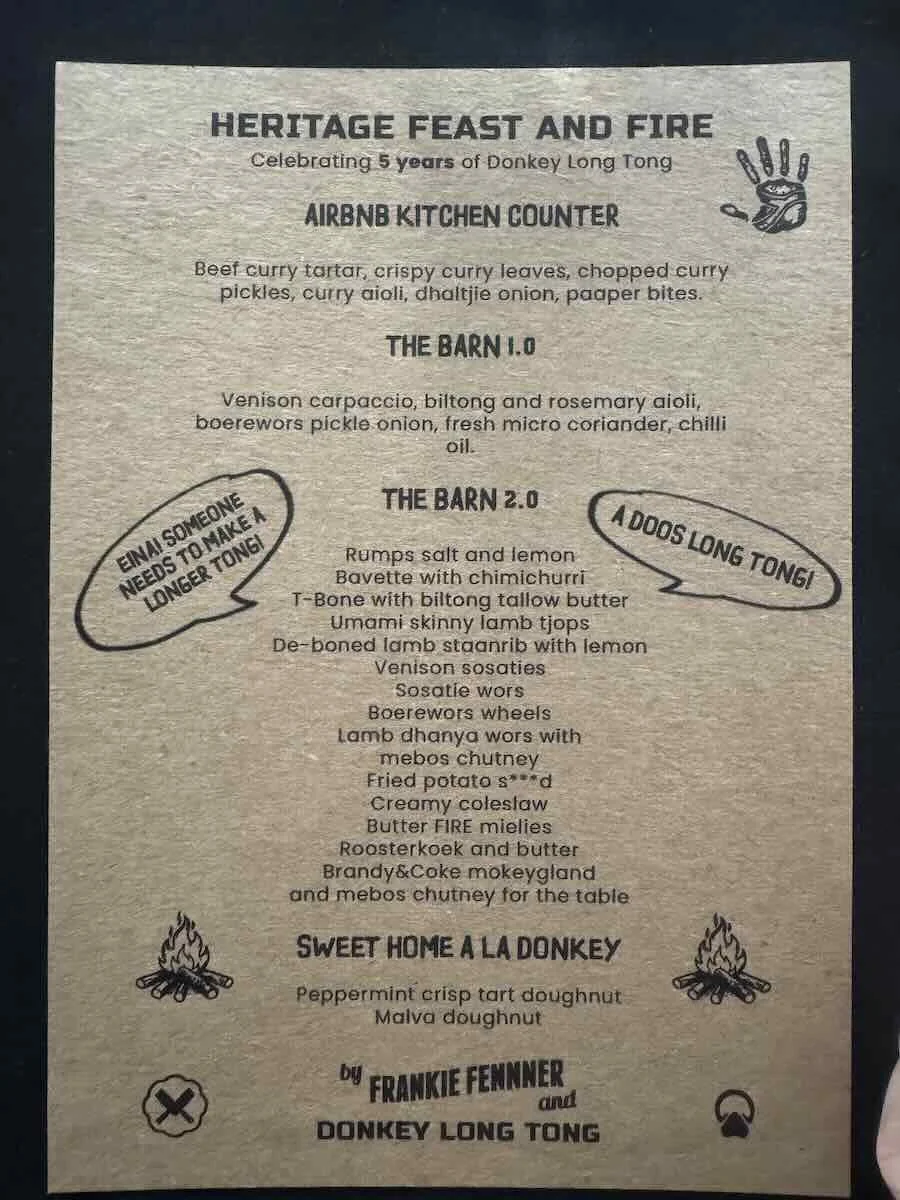 HERITAGE FEAST AND FIRE
Celebrating 5 years of Donkey Long Tong
AIRBNB KITCHEN COUNTER
Beef curry tartar, crispy curry leaves, chopped curry
pickles, curry aioli, dhaltjie onion, paaper bites.
THE BARN 1.0
Venison carpaccio, biltong and rosemary aioli,
boerewors pickle onion, fresh micro coriander, chilli
oil.
THE BARN 2.0
EINA! SOMEONE
NEEDS TO MAKE A
LONGER TONG!
A DOOS LONG TONG!
Rumps salt and lemon
Bavette with chimichurri
T-Bone with biltong tallow butter
Umami skinny lamb tjops
De-boned lamb staanrib with lemon
Venison sosaties
Sosatie wors
Boerewors wheels
Lamb dhanya wors with
mebos chutney
Fried potato s***d
Creamy coleslaw
Butter FIRE mielies
Roosterkoek and butter
Brandy&Coke mokeygland
and mebos chutney for the table
SWEET HOME A LA DONKEY
Peppermint crisp tart doughnut
Malva doughnut
by FRANKIE FENNNER
and
DONKEY LONG TONG